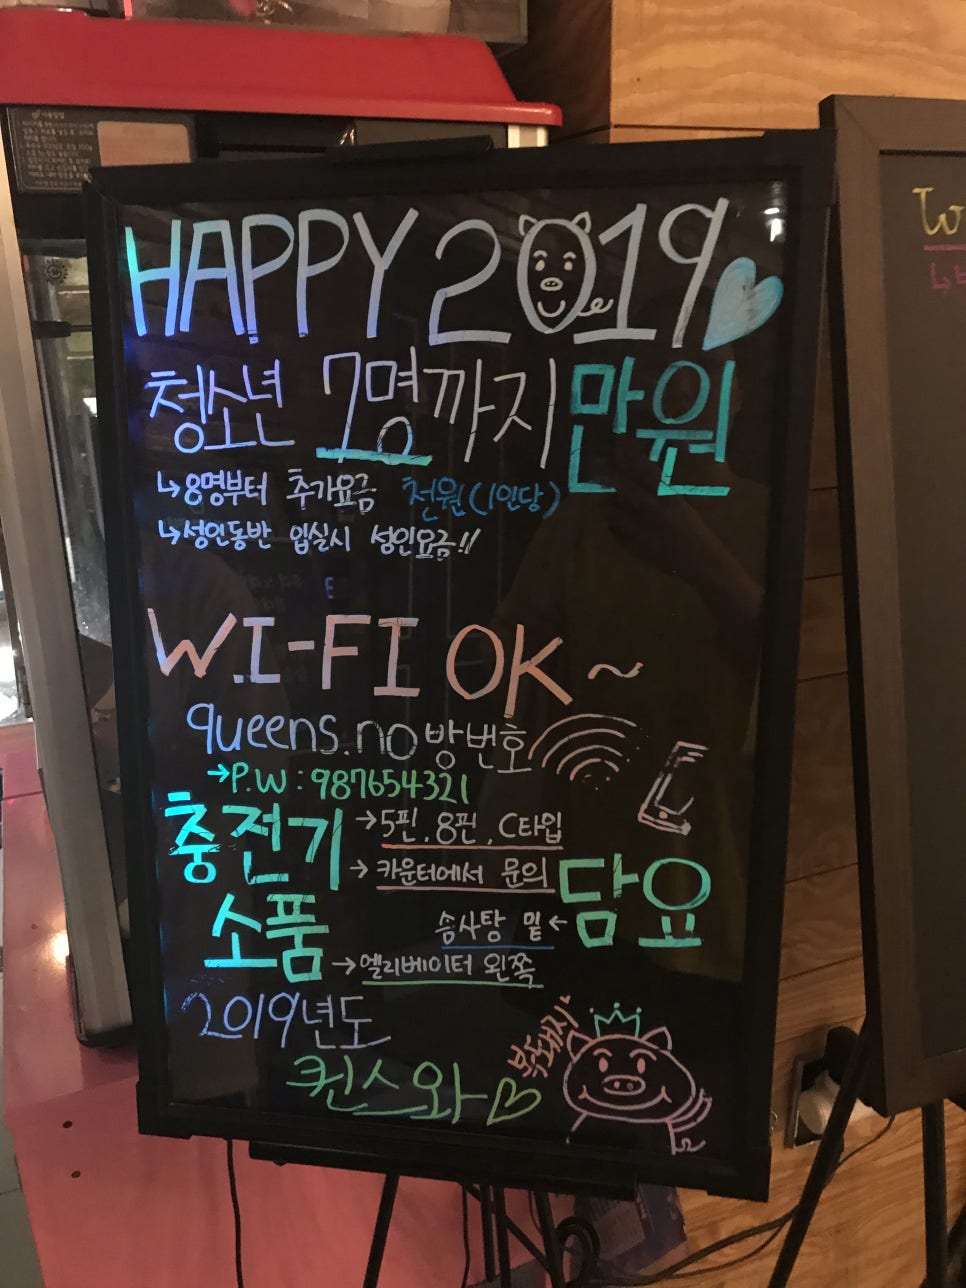 HAPPY 2019
청소년 7명까지 만원
↳8명부터 추가요금 천원(1인당)
↳성인동반 입실시 성인요금!!
WI-FI OK~
queens.no방번호
→P.W : 987654321
충전기 →5핀, 8핀, C타입
→카운터에서 문의
담요
솜사탕 밑←
소품
→엘리베이터 왼쪽
2019년도
퀸스와♡
복돼지
W